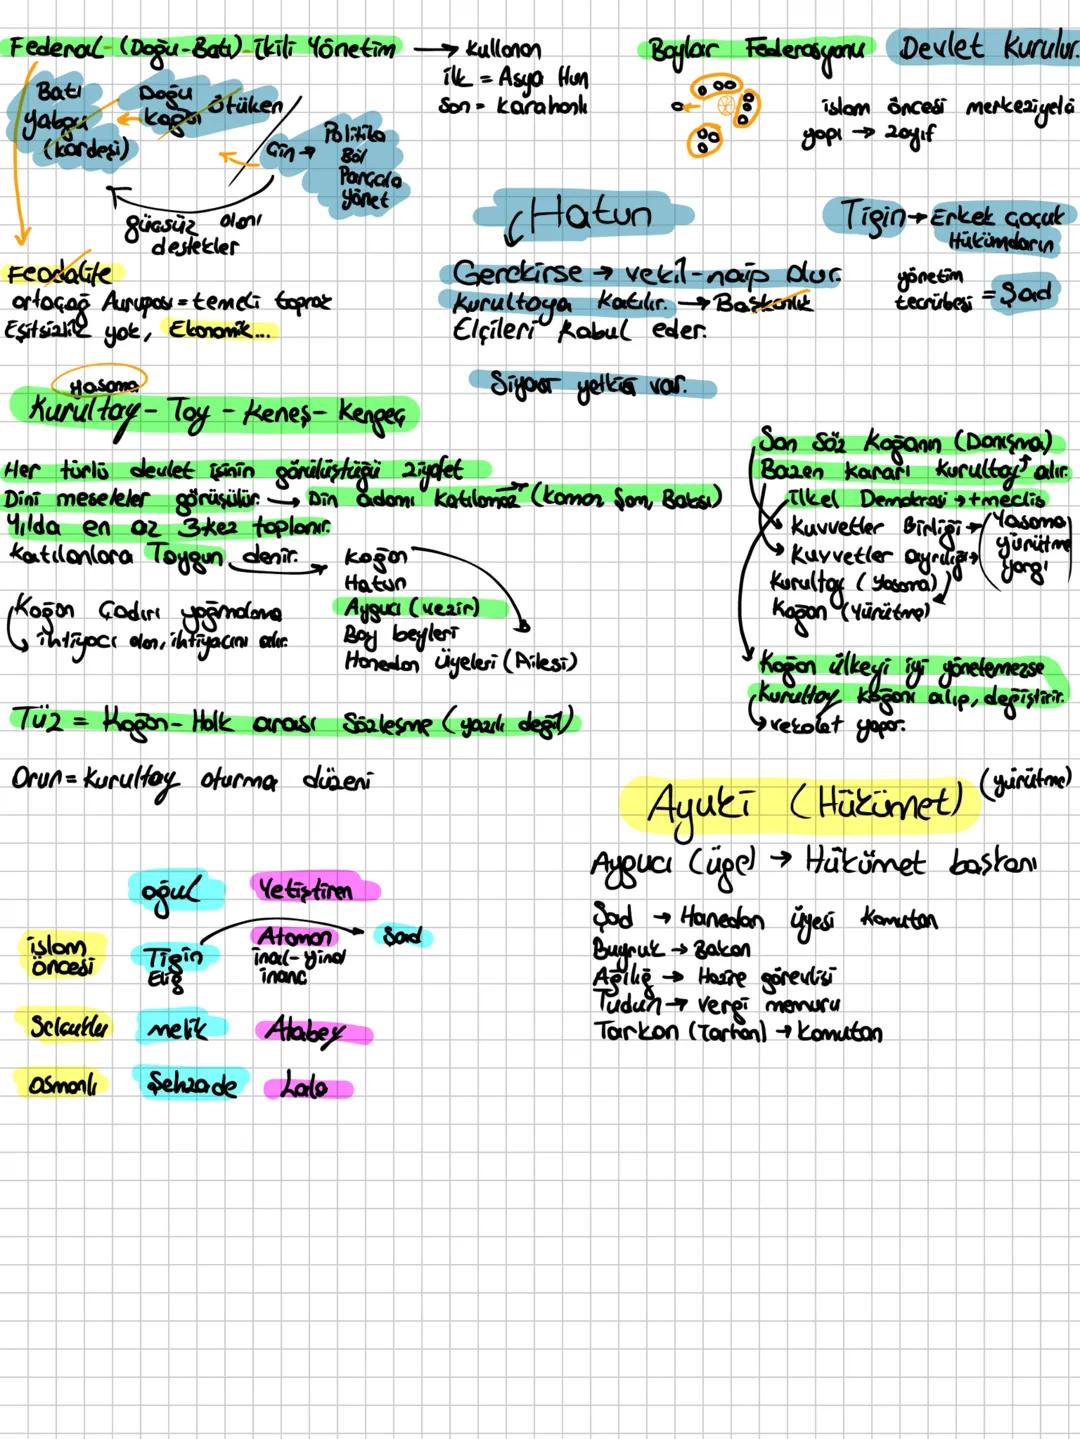 Federal (Doğu-Batı) İkili Yönetim → Kullanan
ilk = Asya Hun
Son = Karahanlı
Batı
Yabgu
(kardeşi)
Doğu
kağan
Ötüken
Çin →
Politika
Böl
Parçala
yönet
güçsüz olanı
destekler
Feodalite
ortaçağ Avrupası = temeli toprak
Eşitsizlik yok, Ekonomik...
Boylar Federasyonu Devlet Kurulur.
islam öncesi merkeziyetçi
yapı → zayıf
Hatun
Gerekirse → vekil-naip olur.
Kurultaya Katılır. → Başkanlık
Elçileri Kabul eder.
Siyasi yetkisi var.
Tigin → Erkek çocuk
Hükümdarın
yönetim
tecrübesi = Şad
Yasama
Kurultay - Toy - Keneş - Kengeç
Her türlü devlet işinin görülüştüğü ziyafet
Dini meseleler görüşülür. → Din adamı Katılamaz (Kaman, Şam, Baksı)
Yılda en az 3 kez toplanır.
Katılanlara Toygun denir. →
Kağan
Hatun
Aygucı (vezir)
Boy beyleri
Hanedan Üyeleri (Ailesi)
Kağan Çadırı yağmalama
ihtiyacı olan, ihtiyacını alır.
Son Söz Kağanın (Danışma)
Bazen kararı kurultay alır.
ilkel Demokrasi → +meclis
Kuvvetler Birliği → (Yasama
Kuvvetler ayrılığı → yürütme
yargı)
Kurultay (Yasama)
Kağan (Yürütme)
Kağan ülkeyi iyi yönetemezse
Kurultay kağanı alıp, değiştirir.
→ vekalet yapar.
Tüz = Kağan-Halk arası Sözleşme (yazılı değil)
Orun = Kurultay oturma düzeni
Ayukı (Hükümet) (yürütme)
Aygucı (üge) → Hükümet başkanı
Şad → Hanedan üyesi Komutan
Buyruk → Bakan
Ağılığ → Hazine görevlisi
Tudun → vergi memuru
Tarkan (Tarhan) → Komutan
oğul Yetiştiren
islam
öncesi
Tigin
Elig
Ataman
inal - yinal
inanç
Şad
Selçuklu melik Atabey
Osmanlı Şehzade Lala